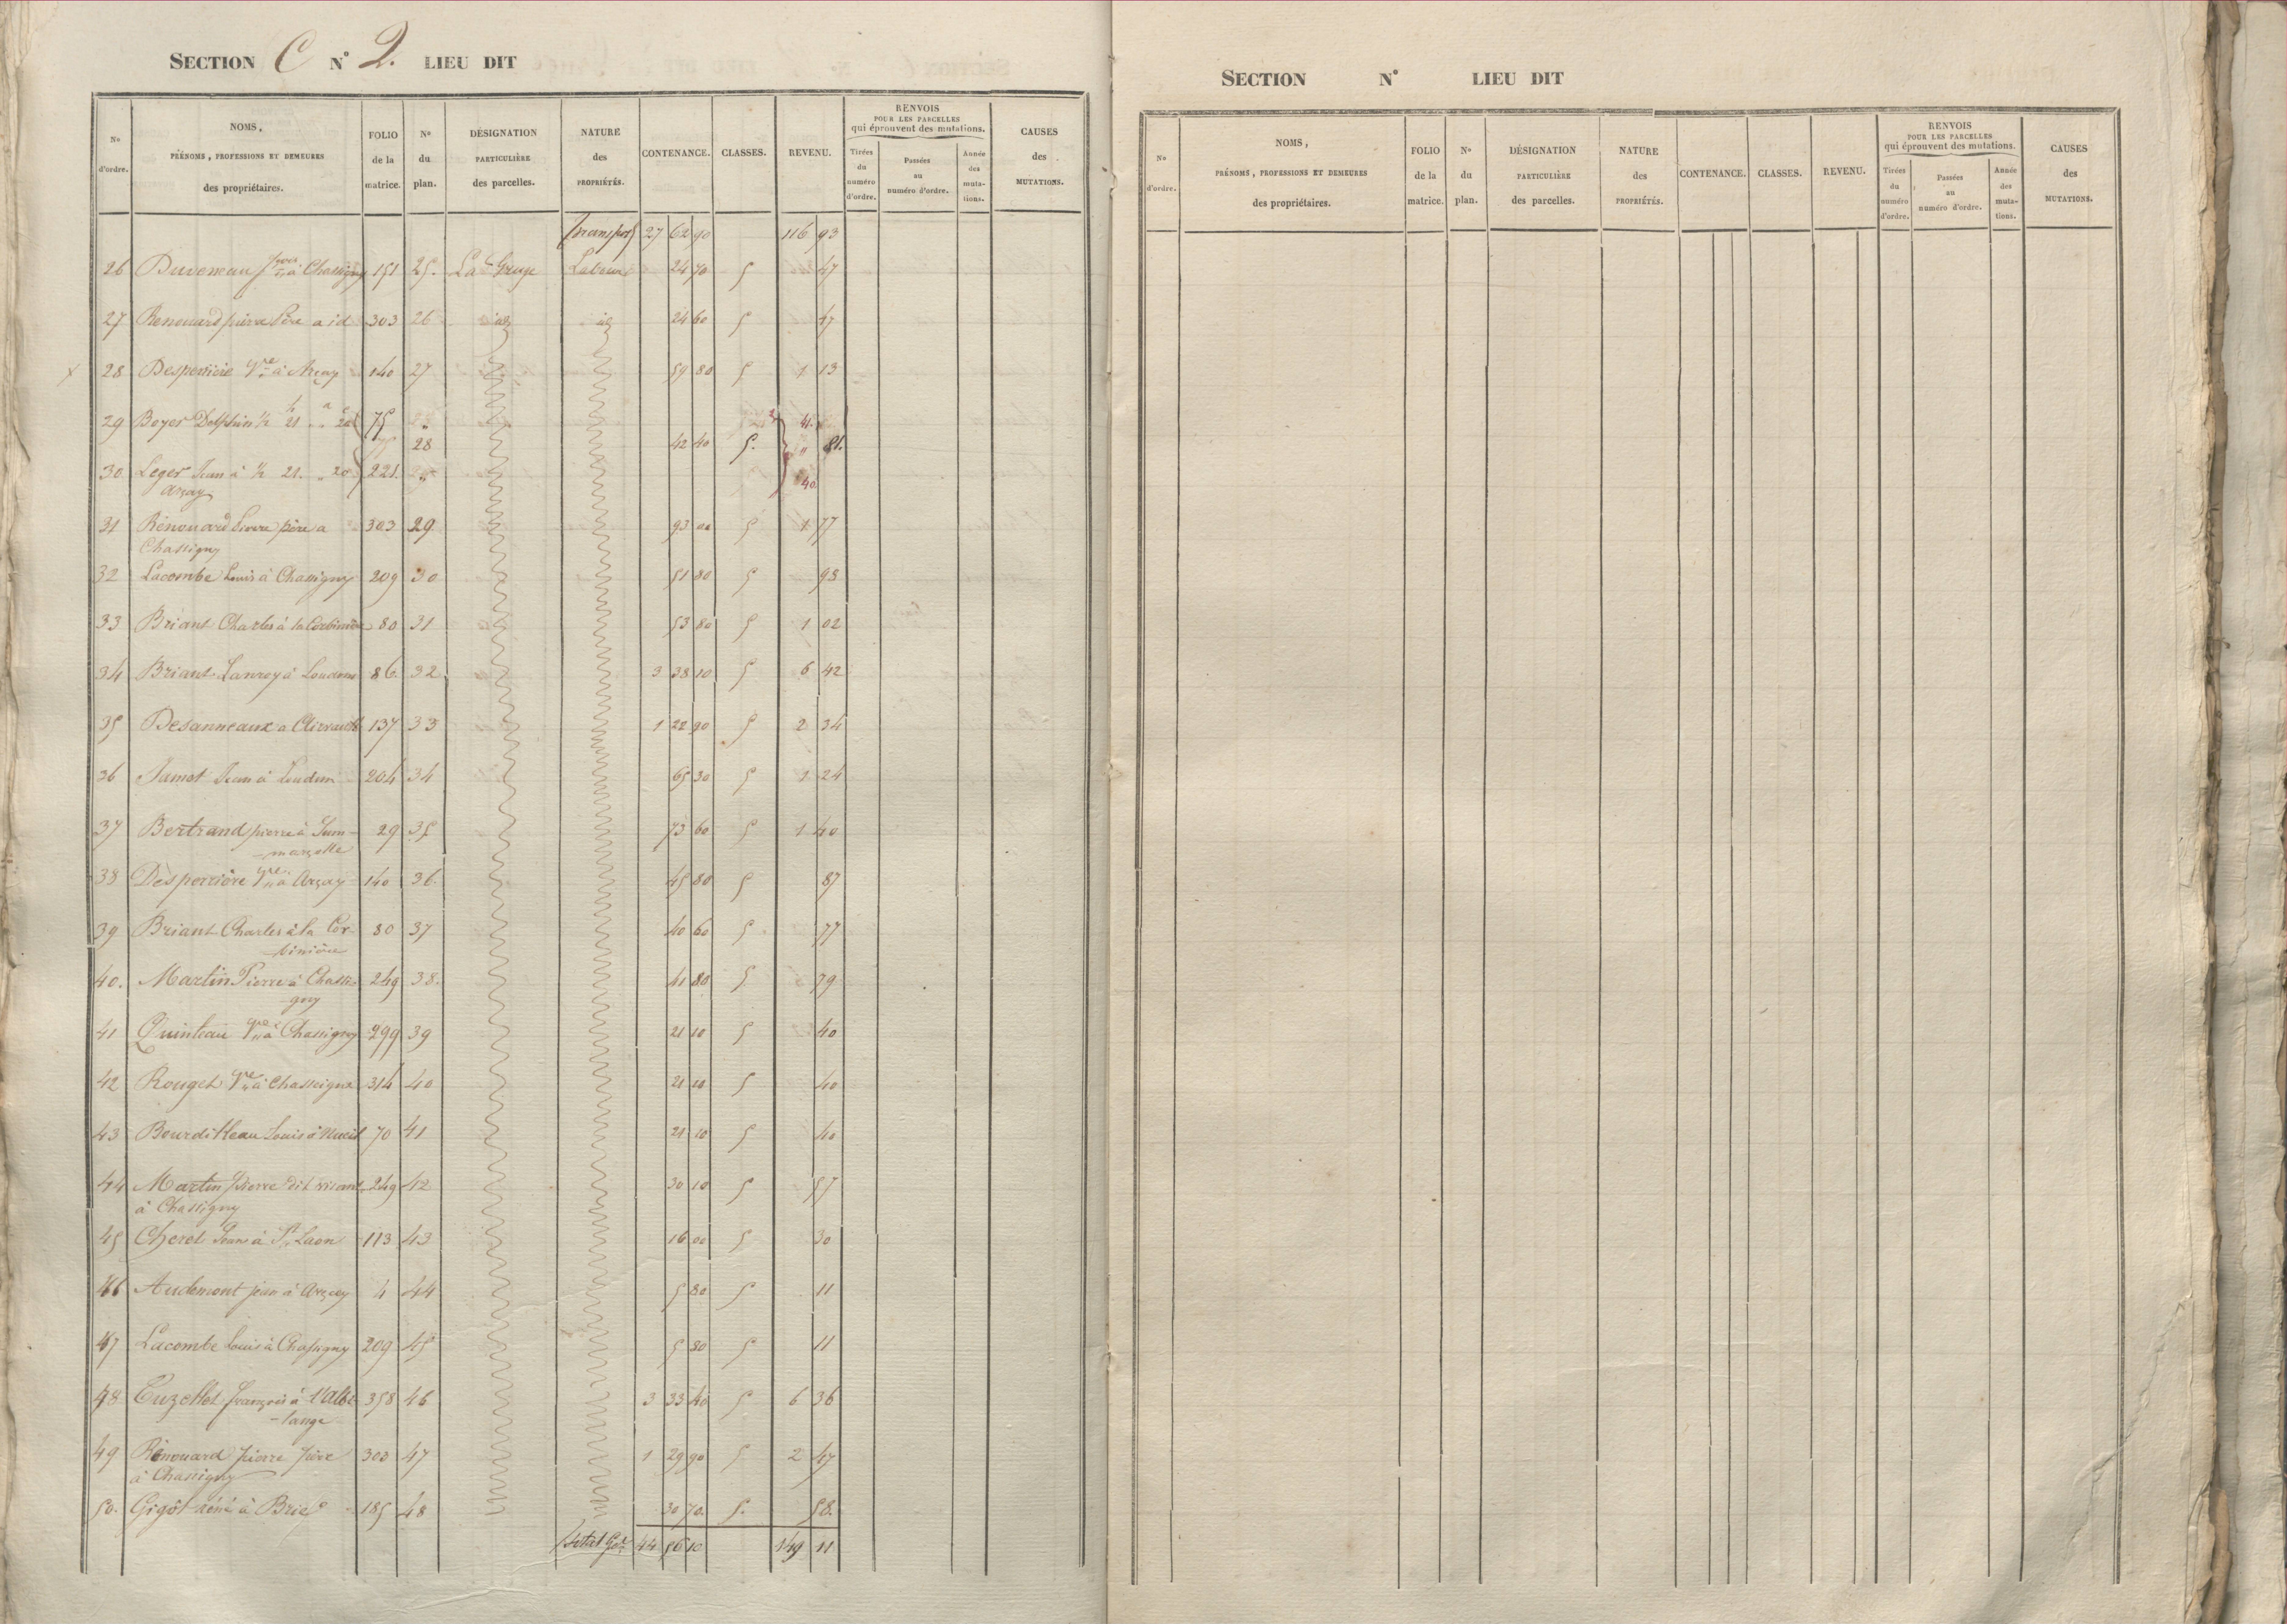 SECTION C N° 2. LIEU DIT
N° d'ordre. NOMS, PRÉNOMS, PROFESSIONS ET DEMEURES des propriétaires. FOLIO de la matrice. N° du plan. DÉSIGNATION PARTICULIÈRE des parcelles. NATURE des PROPRIÉTÉS. CONTENANCE. CLASSES. REVENU. RENVOIS POUR LES PARCELLES qui éprouvent des mutations. Tirées du numéro d'ordre. Passées au numéro d'ordre. Année des mutations. CAUSES des MUTATIONS.
27 62 90 116 93
26 Duveneau à Chassigny 151 25. La Gruge Labour 24 70 5 47
27 Renouard pierre Père a id 303 26 id id 24 60 5 47
28 Desperrière Vve à Arçay 140 27 59 80 5 1 13
29 Boyer Delphin 1/2 21 a 20 c 75 " 41.
28 42 40 5. " 81.
30 Leger Jean à 1/2 21. " 20 221. " 40
arçay
31 Rénouard Pierre père a 303 29 93 00 5 1 77
Chassigny
32 Lacombe Louis à Chassigny 209 30 51 80 5 98
33 Briant Charles à la Corbinière 80 31 53 80 5 1 02
34 Briant Lanroy à Loudun 86. 32 3 38 10 5 6 42
35 Desanneaux a Airvault 137 33 1 22 90 5 2 34
36 Jamet Jean à Loudun 204 34 65 30 5 1 24
37 Bertrand pierre à Sum- 29 35 73 60 5 1 40
-marçolle
38 Desperrière Vve à Arçay 140 36. 45 80 5 87
39 Briant Charles à la Cor- 80 37 40 60 5 77
-binière
40. Martin Pierre à Chassi- 249 38. 41 80 5. 79
-gny
41 Quinteau Vve à Chassigny 299 39 21 10 5 40
42 Rouget Vve à Chasseigne 314 40 21 10 5 40
43 Bourdilleau Louis à Nueil 70 41 21 10 5 40
44 Martin pierre dit 249 42 30 10 5 57
à Chassigny
45 Cherel Jean à St Laon 113 43 16 00 5 30
46 Audemont jean à Arçay 4 44 5 80 5 11
47 Lacombe Louis à Chassigny 209 45 5 80 5 11
48 François à 358 46 3 33 40 5 6 36
49 Rénouard pierre père 303 47 1 29 90 5 2 47
à Chassigny
50. Gigôt réné à Brie 185 48 30 70. 5. 58.
Total Gal 44 56 10 149 11
SECTION N° LIEU DIT
N° d'ordre. NOMS, PRÉNOMS, PROFESSIONS ET DEMEURES des propriétaires. FOLIO de la matrice. N° du plan. DÉSIGNATION PARTICULIÈRE des parcelles. NATURE des PROPRIÉTÉS. CONTENANCE. CLASSES. REVENU. RENVOIS POUR LES PARCELLES qui éprouvent des mutations. Tirées du numéro d'ordre. Passées au numéro d'ordre. Année des mutations. CAUSES des MUTATIONS.